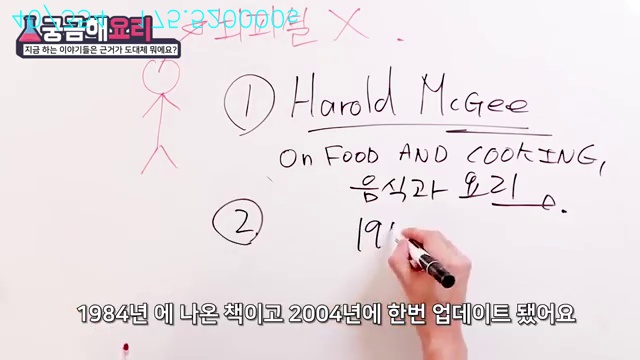 궁금해요리
지금 하는 이야기들은 근거가 도대체 뭐에요?
X.
① Harold McGee
ON FOOD AND COOKING,
음식과 요리.
② 19
1984년 에 나온 책이고 2004년에 한번 업데이트 됐어요